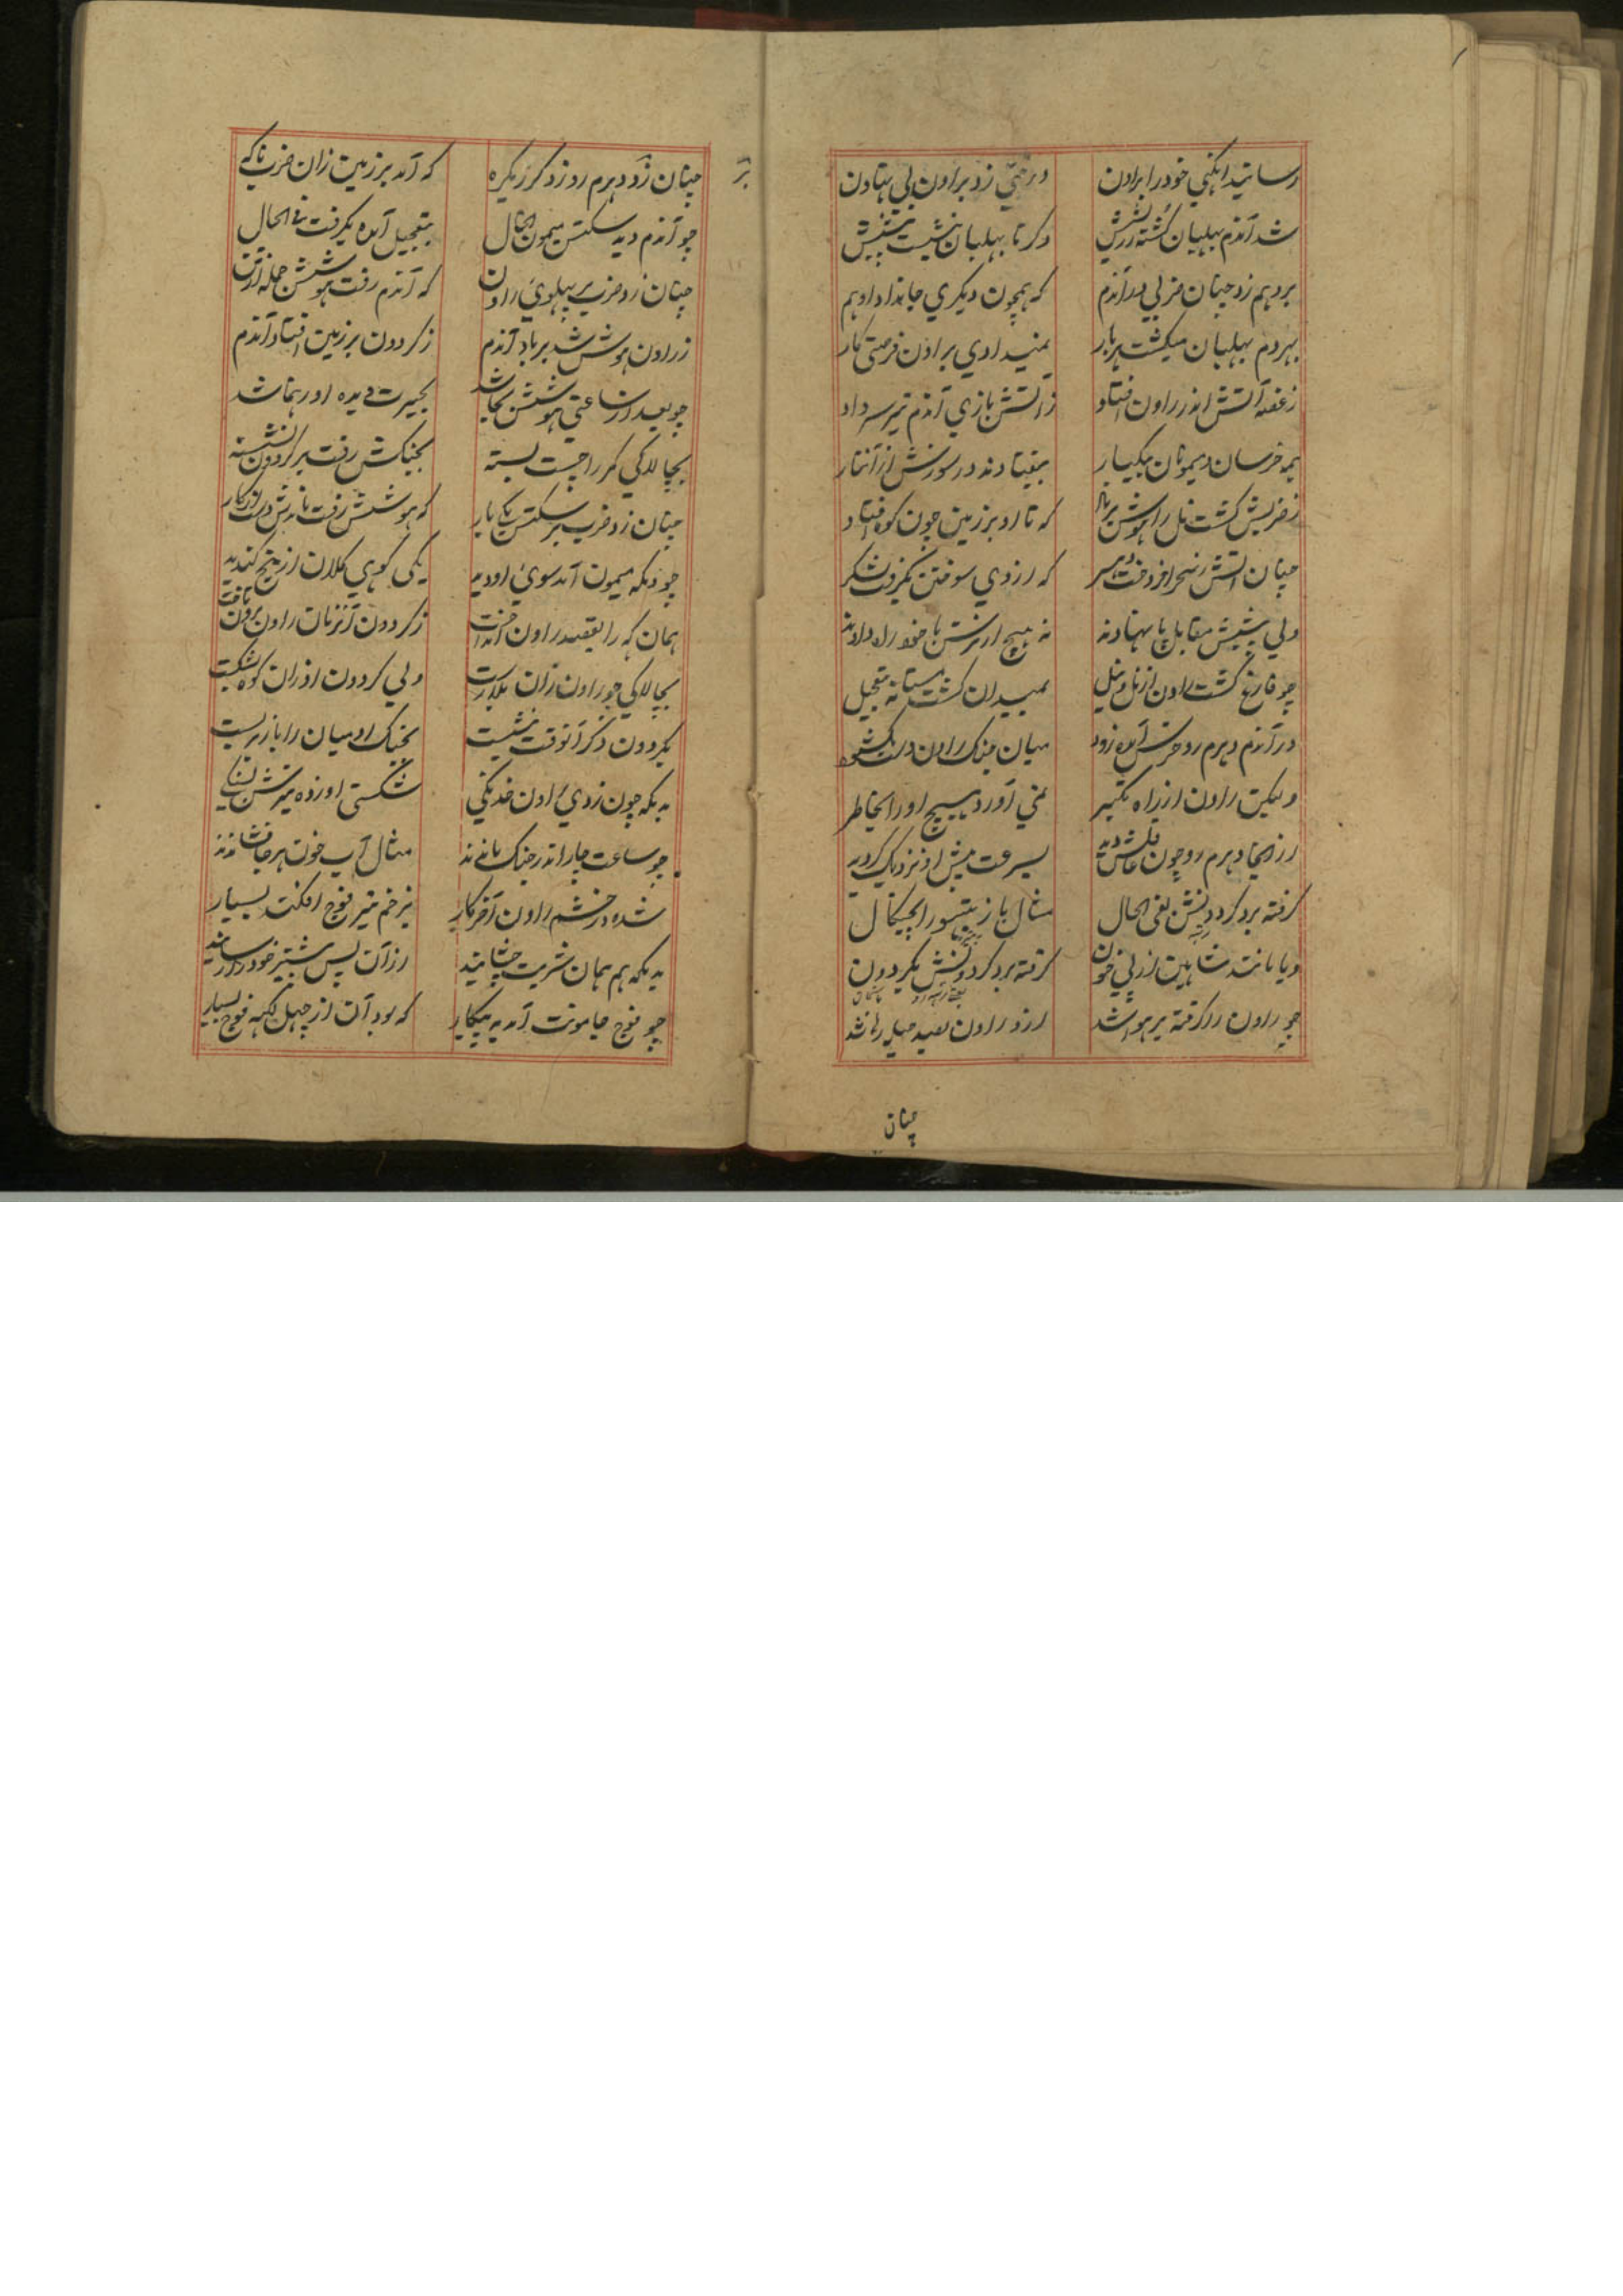 رسانید انکنی خود را براون درختی زد براون بی بتادن
شد آندم بهلبان کشته رزش دکر تا بهلبان بنشیت پیش
برو هم زد چنان ضربی در آندم که همچون دیکری جانداد او هم
بهردم بهلبان میکشت هربار نمیدادی براون فرصتی کار
زغصه آتش اندر راون افتاد ز آتش بازی آندم تیر سر داد
همه خرسان و میمونان بیکبار بیفتادند در سوزش از آن نار
ز ضربش کشت نل را هوش برباد که تا او بر زمین چون کوه افتاد
چنان آتش ز سحر افروخت که از وی سوختن بگرفت لشکر
ولی پیشش مقابل پا نهادند نه هیچ از ترس با خود راه دادند
چو فارغ کشت راون از نل و نیل بمیدان کشت مستانه بتعجیل
در آندم دهرم رو خرس آمد زود میان جنک راون دست بکشود
ولیکن راون از راه تکبر نمی آورد هیچ او را بخاطر
از اینجا دهرم رو چون غافلش دید بسرعت پیش او نزدیک کردید
کرفته برد کردونش بفی الحال مثال باز تیتر را بچنکال
ویا مانند شاهین از پی خون کرفته برد کردونش بکردون
چو راون را کرفته بر هوا شد ازو راون بصد حیله رها شد
چنان
چنان زد دهرم رو زد کرز یکره که آمد بر زمین زان ضرب ناکه
چو آندم دید سکتن میمون الحال بتعجیل آمده بکرفت فی الحال
چنان زد ضرب بر پهلوی راون که آندم رفت هوشش جمله از تن
ز راون هوش شد برباد آندم ز کردون بر زمین افتاد آندم
چو بعد از ساعتی هوشش بجا شد بحیرت دیده او رهنما شد
بچالاکی کمر را چست بسته بجنکش رفت بر کردون نشسته
چنان زد ضرب بر سکتن یکبار که هوشش رفت ماندش دست از کار
چو دبکه میمون آمد سوی او دید یکی کوهی کلان از بیخ کندید
همان که را بقصد راون انداخت ز کردون آنزمان راون برون تافت
بچالاکی چو راون زان بلا رست ولی کردون او زان کوه بشکست
بکردون دکر آنوقت بنشست بجنک او میان را باز بربست
به بکه چون زدی راون خدنکی شکستی او زده تیرش بسنکی
چو ساعت چار اندر جنک ماندند مثال آب خون هر جا فشاندند
شده در خشم راون آخر کار بزخم تیر فوج افکند بسیار
به بکه هم همان شربت چشانید از آن پس پیشتر خود را رسانید
چو فوج جامونت آمد به پیکار که بود آن از چهل لکهه فوج بسیار